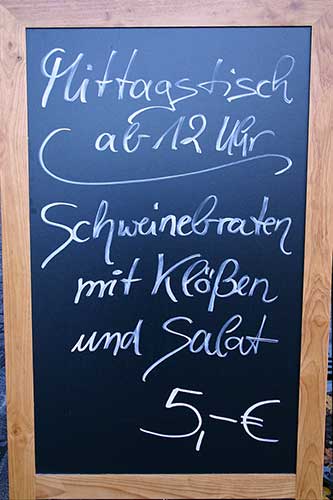 Mittagstisch
ab 12 Uhr
Schweinebraten
mit Klößen
und Salat
5,-€